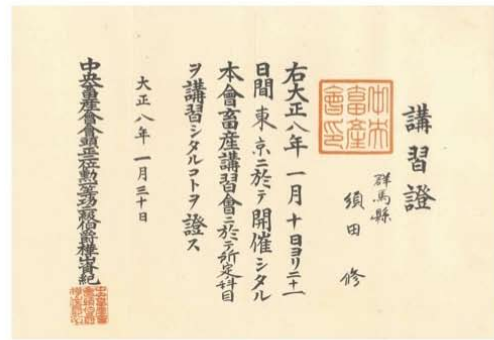 講習證
群馬縣
須田 修
中央畜産會印
右大正八年一月十日ヨリ二十一
日間東京ニ於テ開催シタル
本會畜産講習會ニ於テ所定科目
ヲ講習シタルコトヲ證ス
大正八年一月三十日
中央畜産會會頭正二位勲一等功二級伯爵樺山資紀